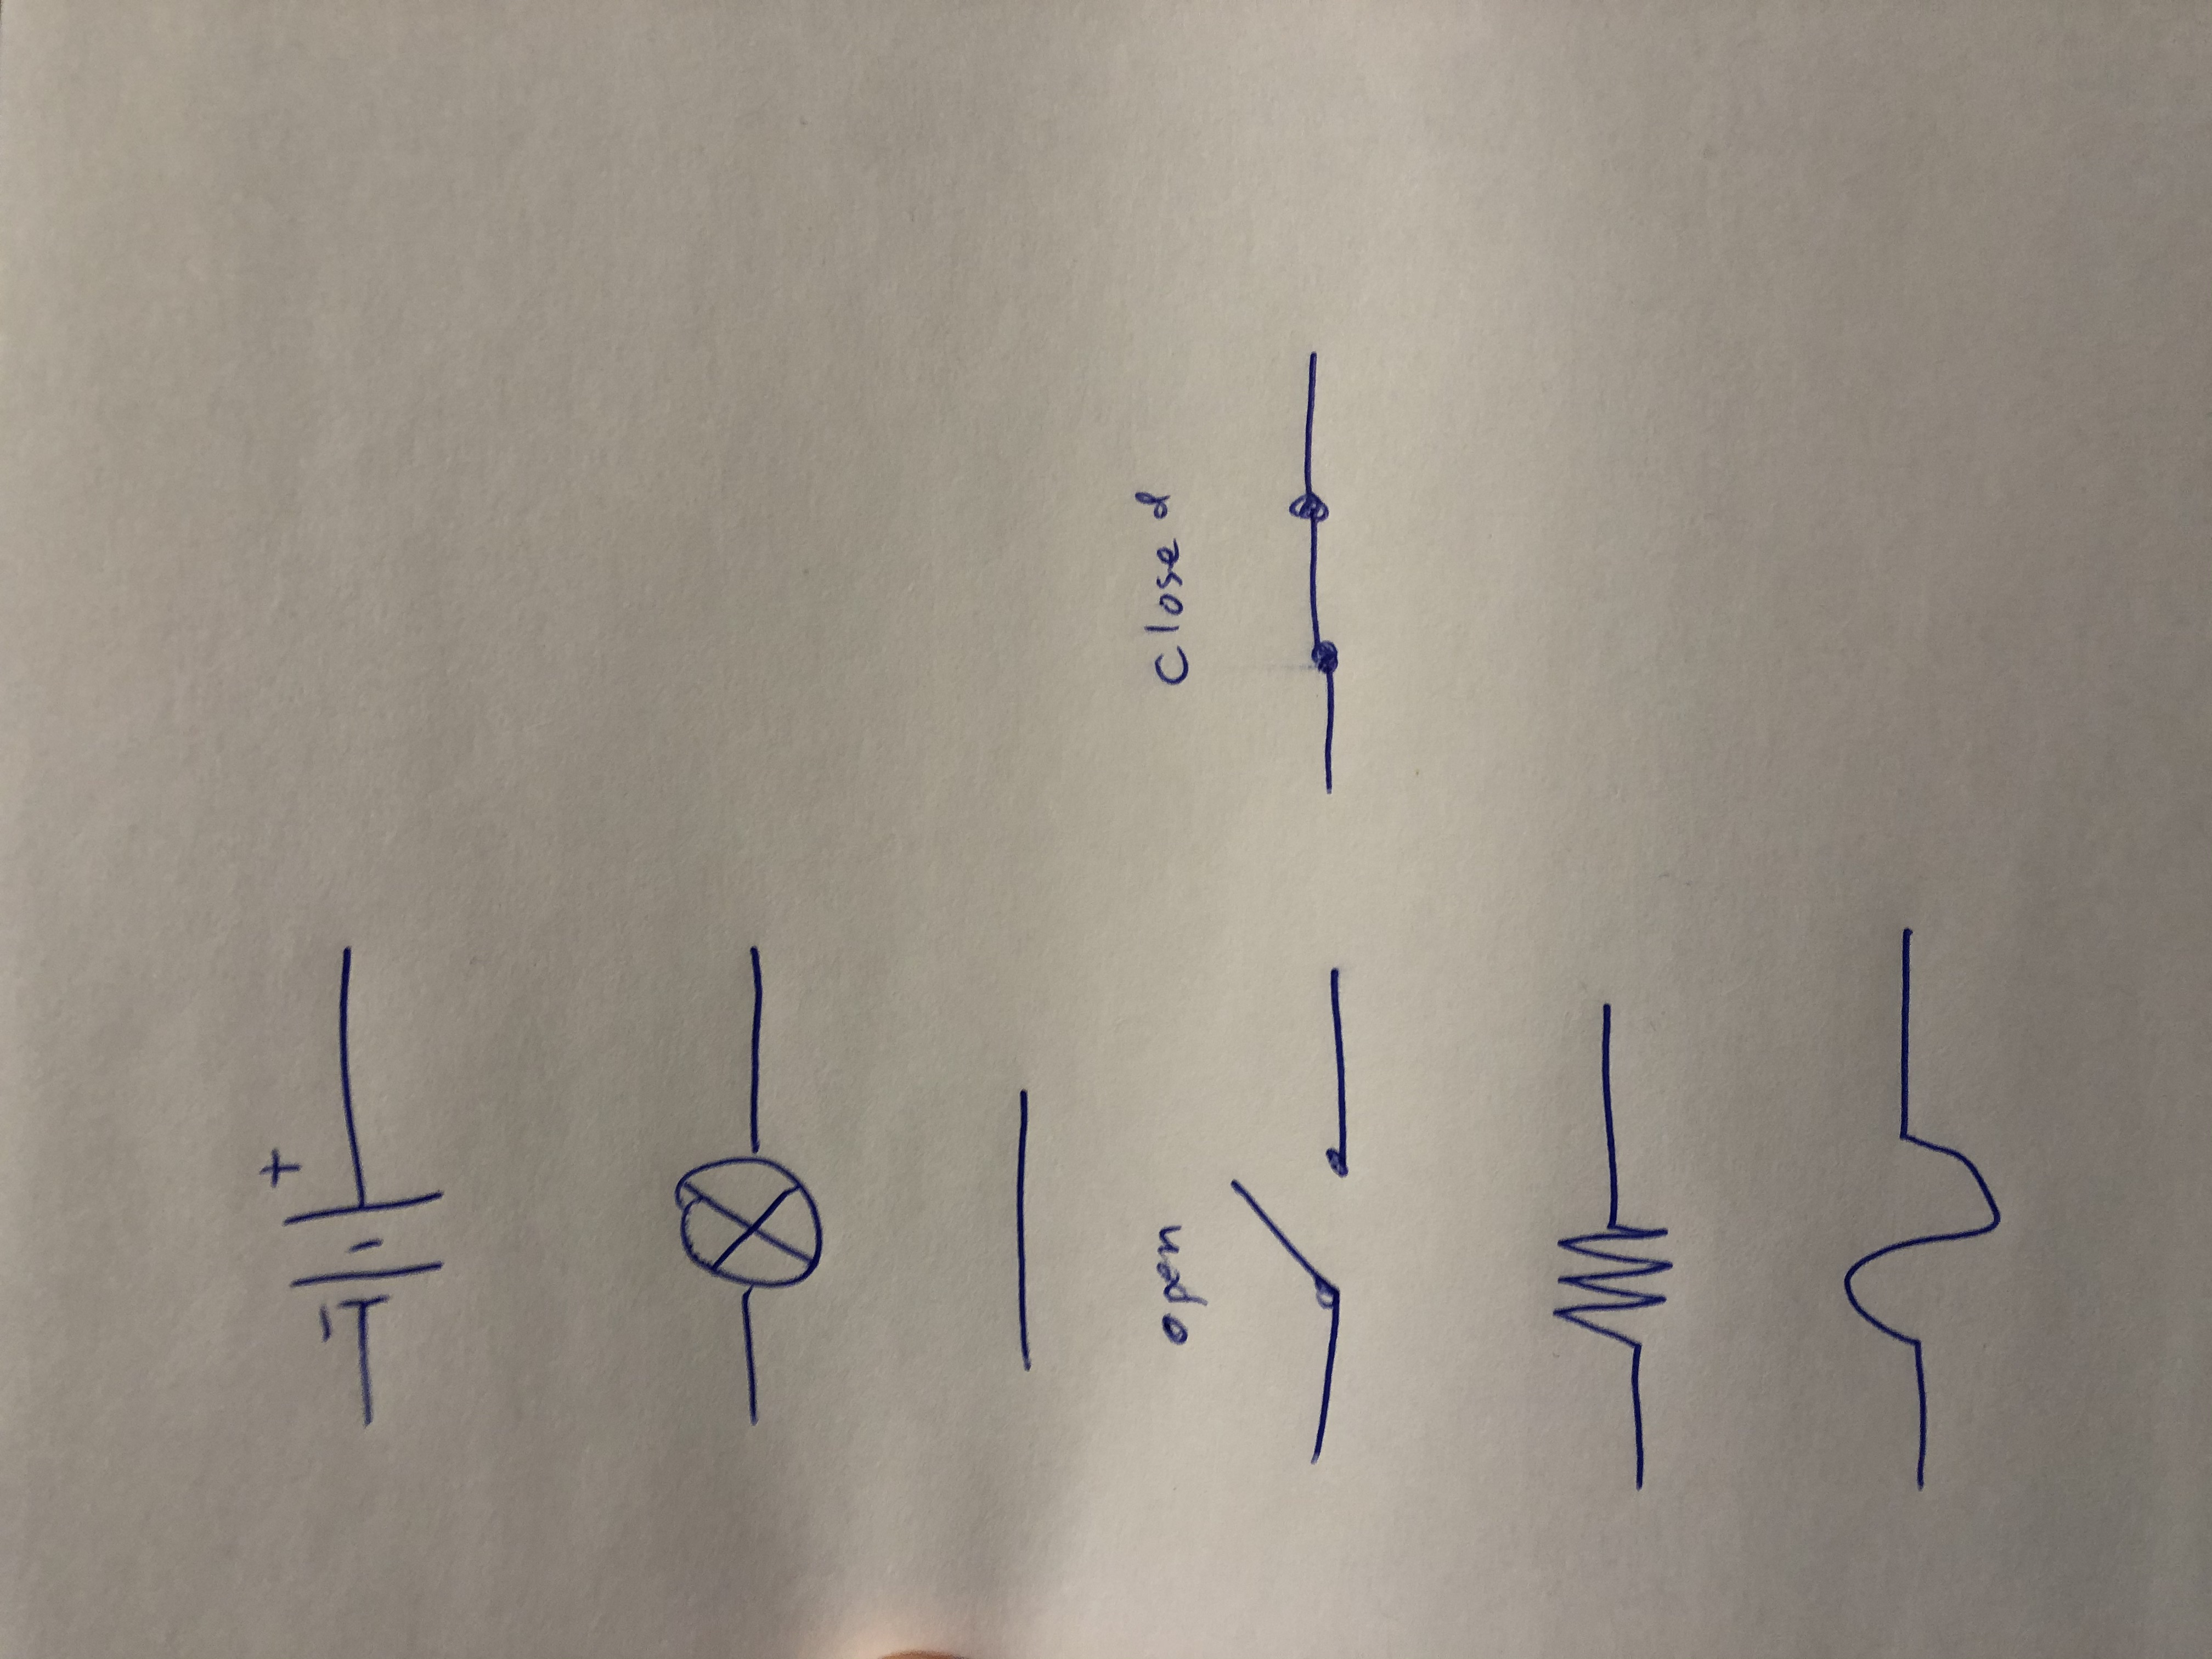 - +
open closed